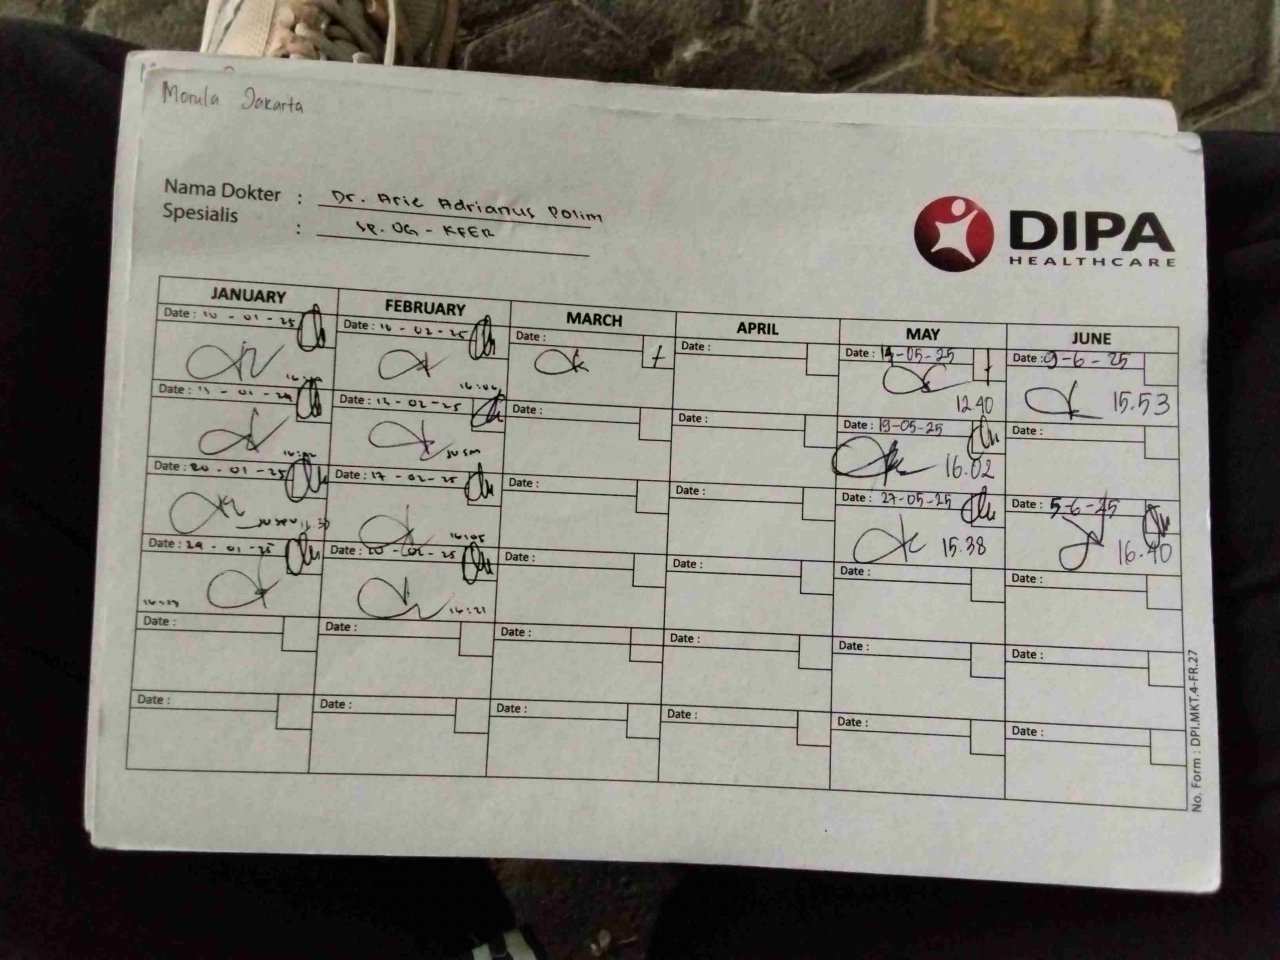 Morula Jakarta
Nama Dokter : Dr. Arie Adrianus Polim
Spesialis : SP. OG - KFER
DIPA
HEALTHCARE
JANUARY FEBRUARY MARCH APRIL MAY JUNE
Date : 10 - 01 - 25 Date : 10 - 02 - 25 Date : Date : Date : 14-05-25 Date : 9-6-25
16:06 12.40 15.53
Date : 13 - 01 - Date : 12 - 02 - 25 Date : Date : Date : 19-05-25 Date :
16.02
Date : 20 - 01 - 25 Date : 17 - 02 - 25 Date : Date : Date : 27-05-25 Date : 5-6-25
16:05 15.38 16.40
Date : 24 - 01 - 25 Date : 20 - 02 - 25 Date : Date : Date : Date :
16:21
Date : Date : Date : Date : Date : Date :
Date : Date : Date : Date : Date : Date :
No. Form : DPI.MKT.4-FR.27